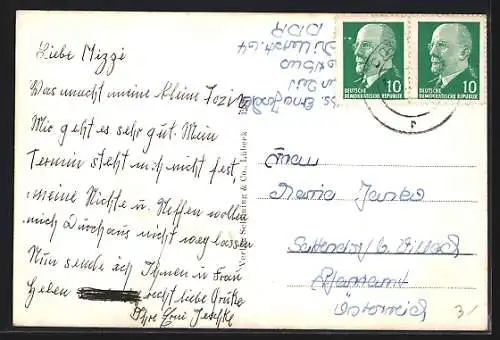 Liebe Mizzi
Was macht meine kleine
Mir geht es sehr gut. Mein
Termin steht noch nicht fest,
meine Nichte u. Neffen wollen
mich Durchaus nicht weg lassen
Nun sende ich Ihnen u Frau
recht liebe Grüße
Ihre Erni Jeschke
DDR
10
DEUTSCHE
DEMOKRATISCHE REPUBLIK
10
DEUTSCHE
DEMOKRATISCHE REPUBLIK
Verlag Schöning & Co., Lübeck
Frau
Maria Janko
b. Villach
Pfarramt
Österreich
3/